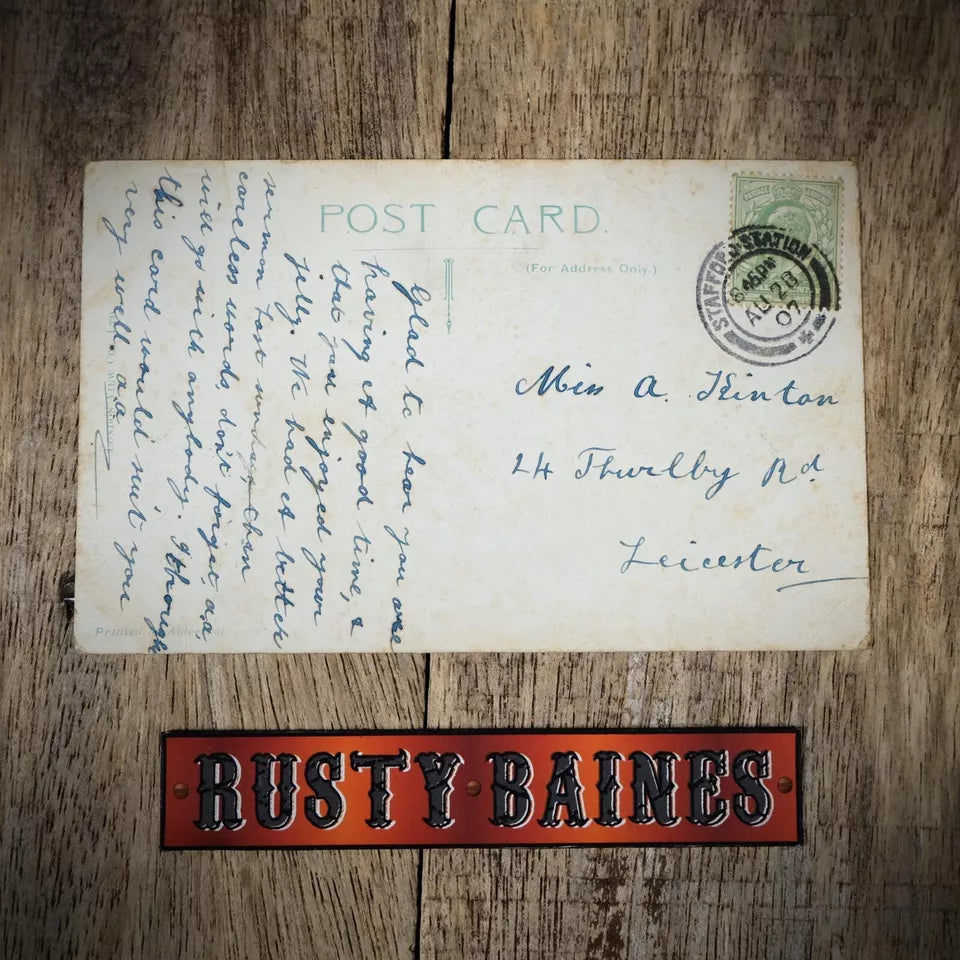 POST CARD.
(For Address Only.)
STAFFORD STATION
AU 20
07
Miss A. Kinton
24 Thurlby Rd.
Leicester
Glad to hear you are
having a good time, &
that you enjoyed your
jelly. We had a better
sermon last than
careless words, don't forget,
will go with anybody. I though
this card would suit you
very well.
Printed
RUSTY BAINES